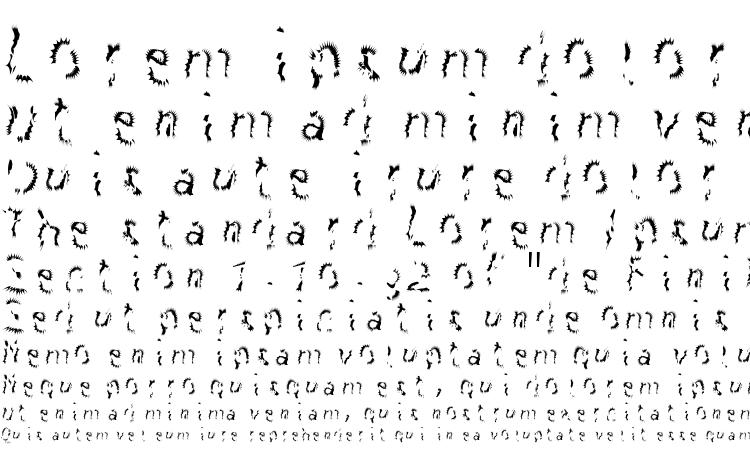 Lorem ipsum dolor
Ut enim ad minim ven
Duis aute irure dolor
The standard Lorem Ipsum
Section 1.10.32 of "de Fini
Sed ut perspiciatis unde omnis
Nemo enim ipsam voluptatem quia volu
Neque porro quisquam est, qui dolorem ipsum
Ut enim ad minima veniam, quis nostrum exercitationem
Quis autem vel eum iure reprehenderit qui in ea voluptate velit esse quam